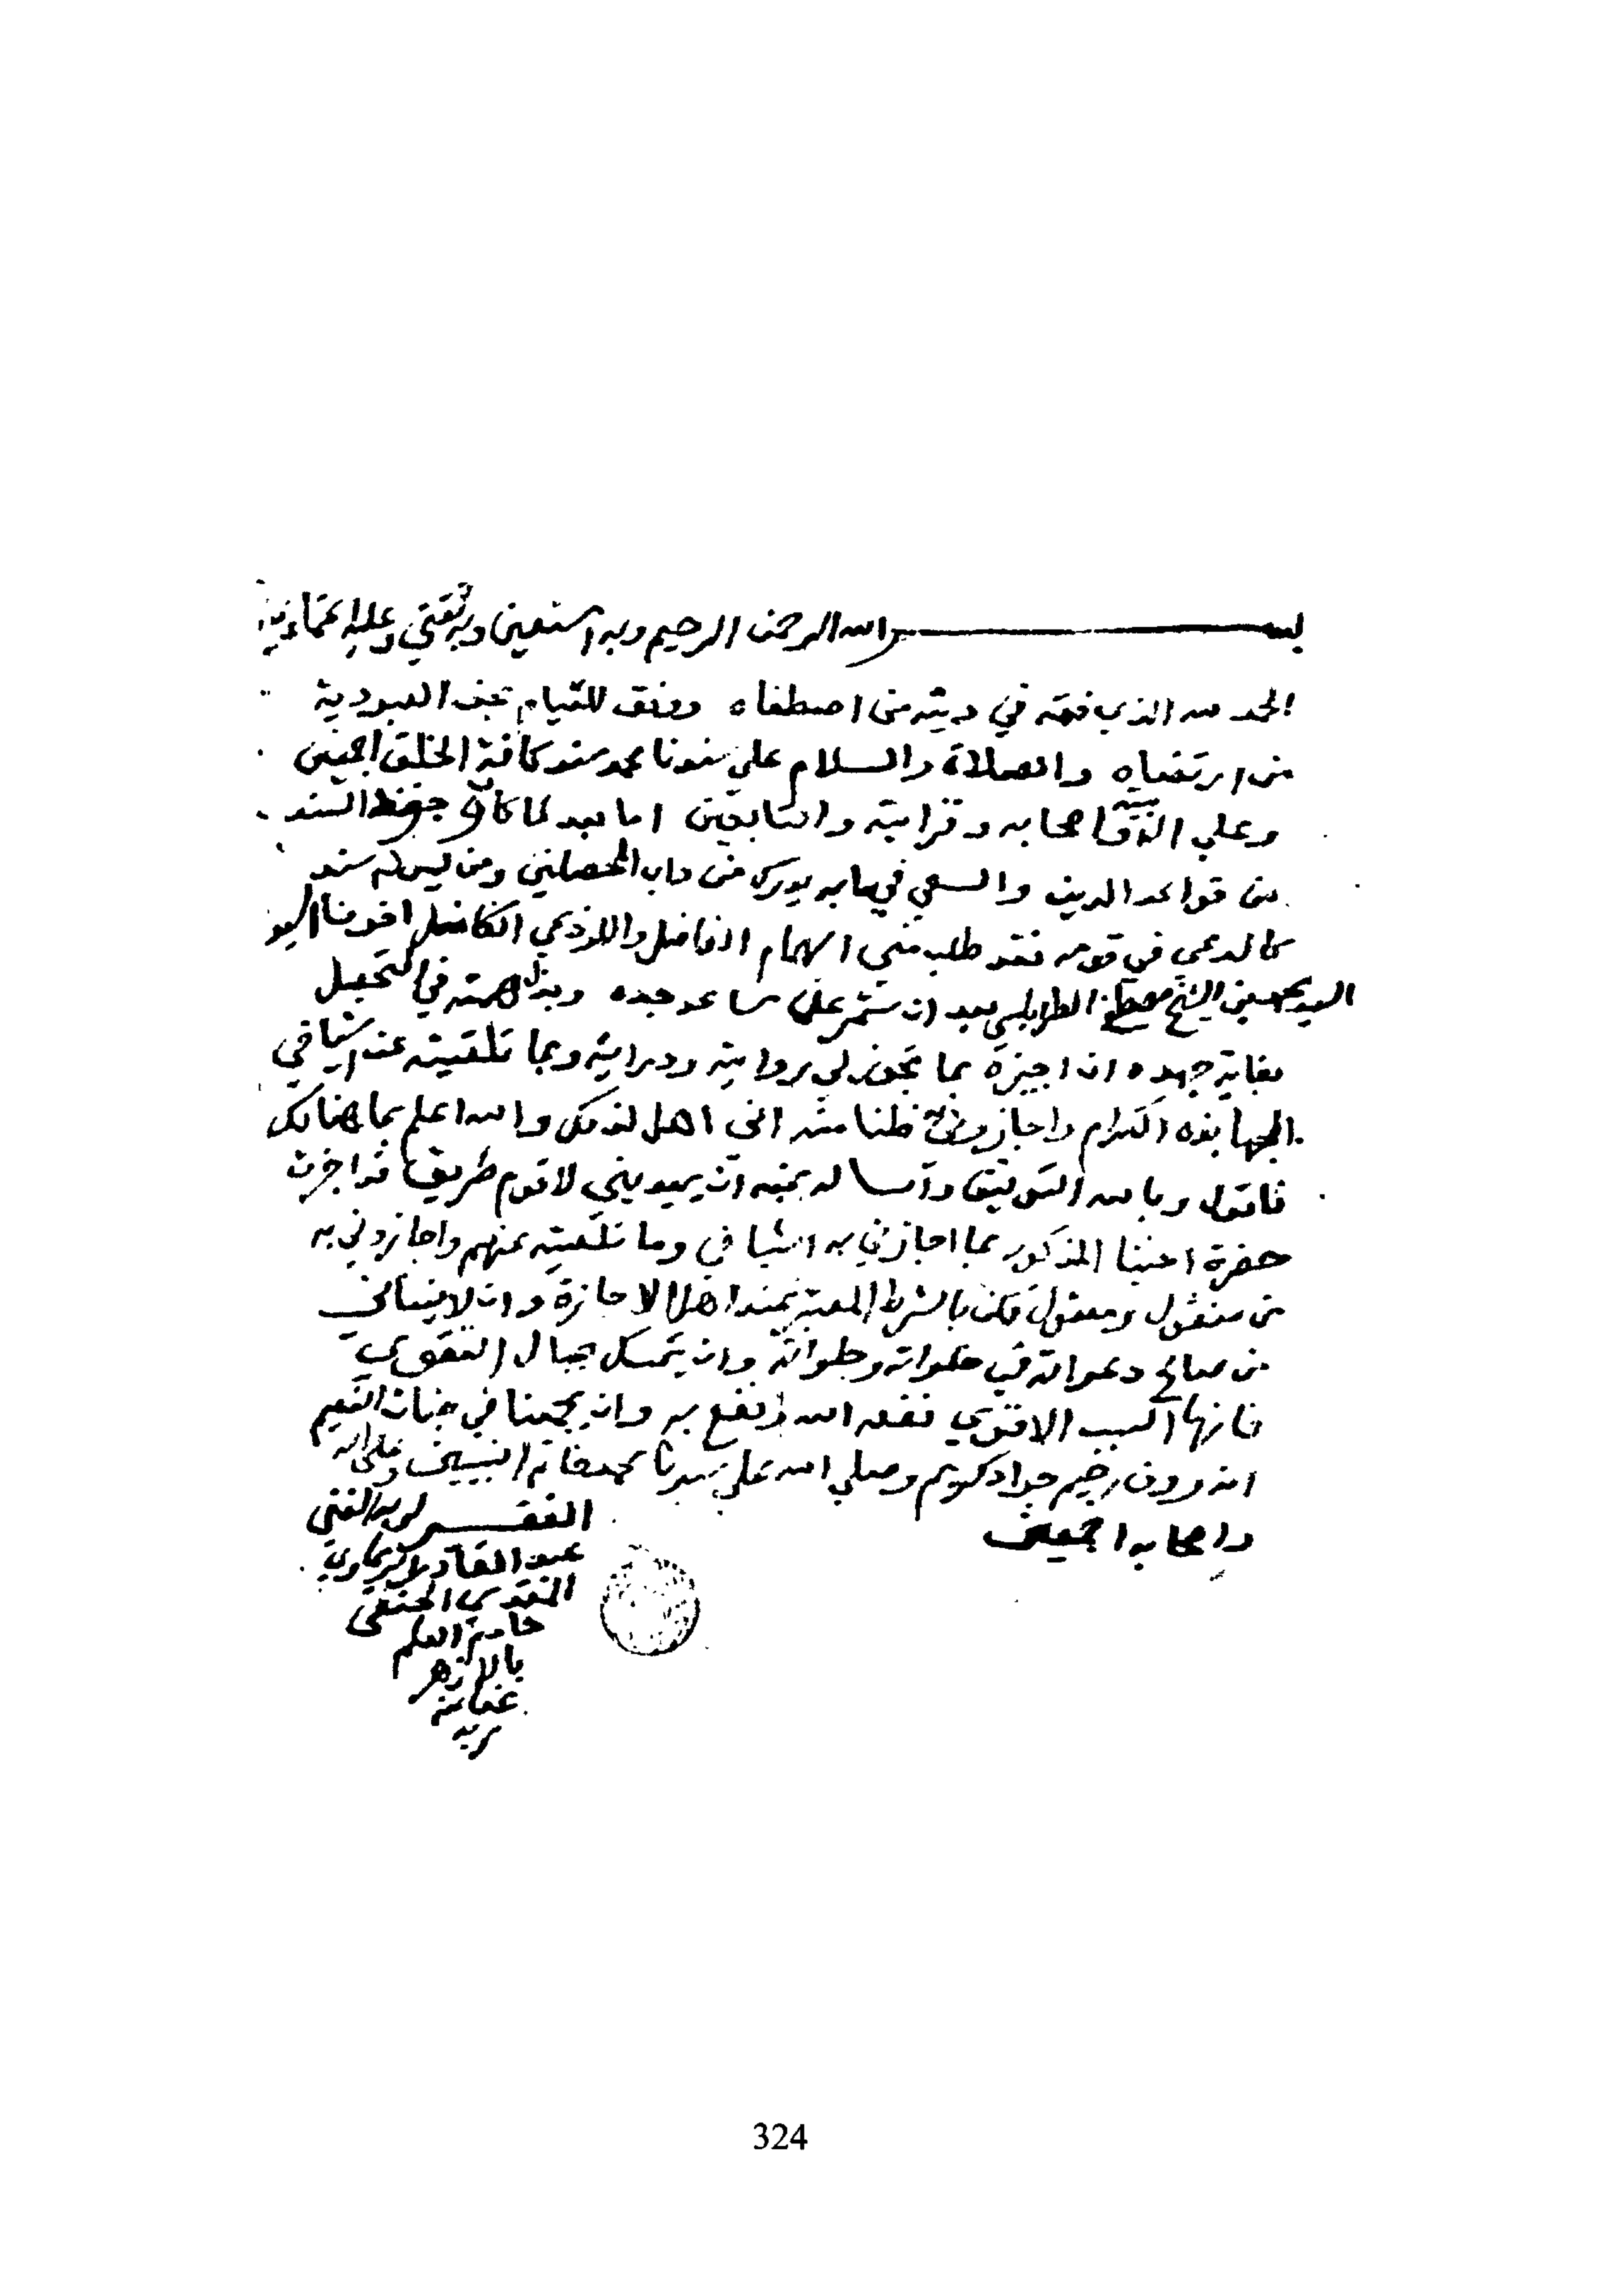 بسم الله الرحمن الرحيم وبه استعين وبه ثقتي وعليه اعتمادي
الحمد لله الذي فقه في دينه من اصطفاه ووفق للقيام بحق العبودية
من ارتضاه والصلاة والسلام علي سندنا محمد سند كافة الخلق اجمعين
وعلي اصحابه وقرابته والتابعين اما بعد لما كان حفظ السند
من قواعد الدين والسعي فيما به يدرك من داب المحصلين ومن ليس له سند
كالدعي في قومه فقد طلب مني الهمام الفاضل واللوذعي الكامل اخونا
السيد حسين الشيخ مصطفى الطرابلسي بعد ان شمر علي ساعد جده وبذل همته في التحصيل
بغاية جهده ان اجيزه بما تجوز لي روايته ودرايته وبما تلقيته عن اشياخي
الجهابذه الكرام واجازوني ظنا منه اني اهل لذلك والله اعلم بما هنالك
فاقول وبالله التوفيق واساله بمنه ان يهديني لاقوم طريق قد اجزت
حضرة اخينا المذكور بما اجازني به اشياخي وما تلقيته عنهم واجازوني به
من منقول ومعقول لكن بالشرط المعتبر عند اهل الاجازة وان لا ينساني
من صالح دعواته في خلواته وجلواته وان يتمسك بحبال التقوي
فانها السبب الاقوي نفعه الله ونفع به وان يجمعنا في جنات النعيم
انه روف رحيم جواد كريم وصلي الله علي سيدنا محمد خاتم النبيين وعلي اله
واصحابه اجمعين
الفقير لربه الغني
عبد القادر
المقدسي الحنفي
خادم العلم
بالازهر
عفا عنه
ربه
324